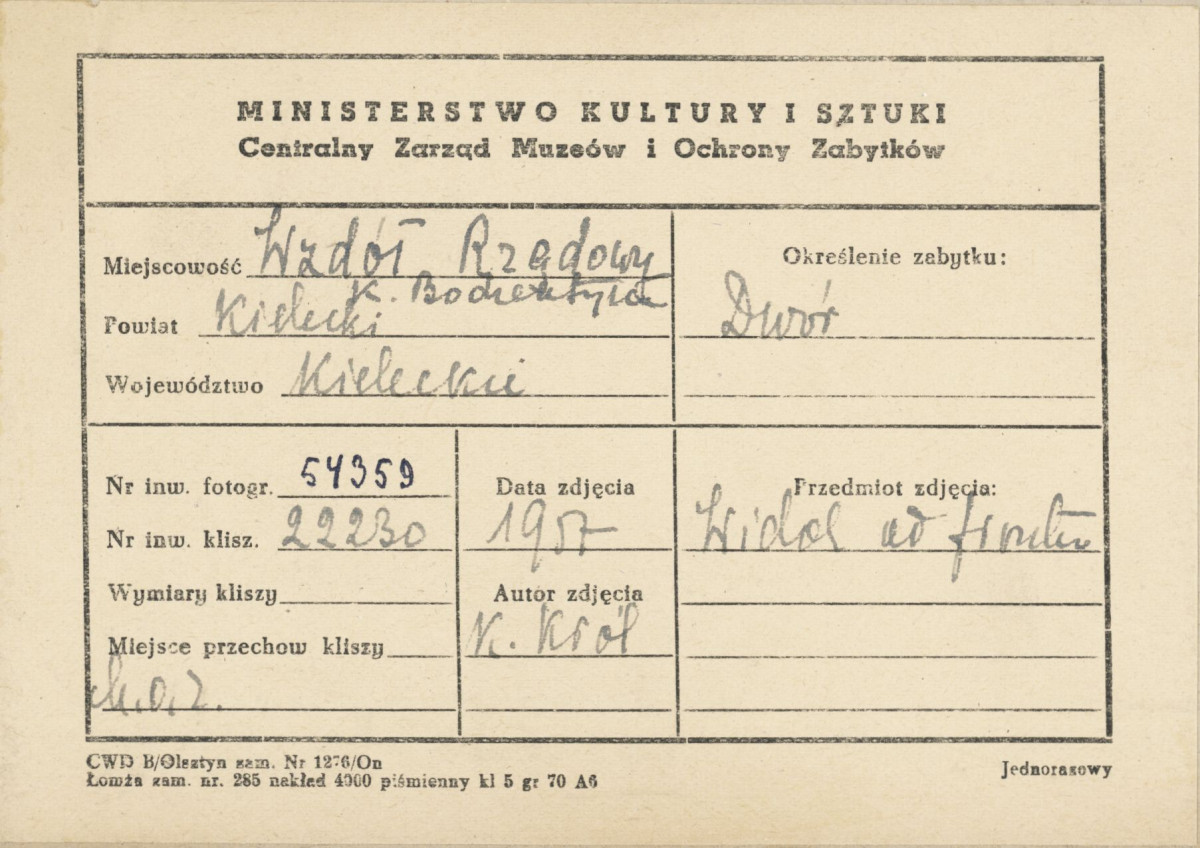 MINISTERSTWO KULTURY I SZTUKI
Centralny Zarząd Muzeów i Ochrony Zabytków
Miejscowość Wzdół Rządowy
k. Bodzentyna
Powiat Kielecki
Województwo Kieleckie
Określenie zabytku:
Dwór
Nr inw. fotogr. 54359
Nr inw. klisz. 22230
Wymiary kliszy
Miejsce przechow kliszy
M.O.Z.
Data zdjęcia
1957
Autor zdjęcia
K. Król
Przedmiot zdjęcia:
Widok od frontu
CWD B/Olsztyn zam. Nr 1276/On
Łomża zam. nr. 285 nakład 4000 piśmienny kl 5 gr 70 A6
Jednorazowy